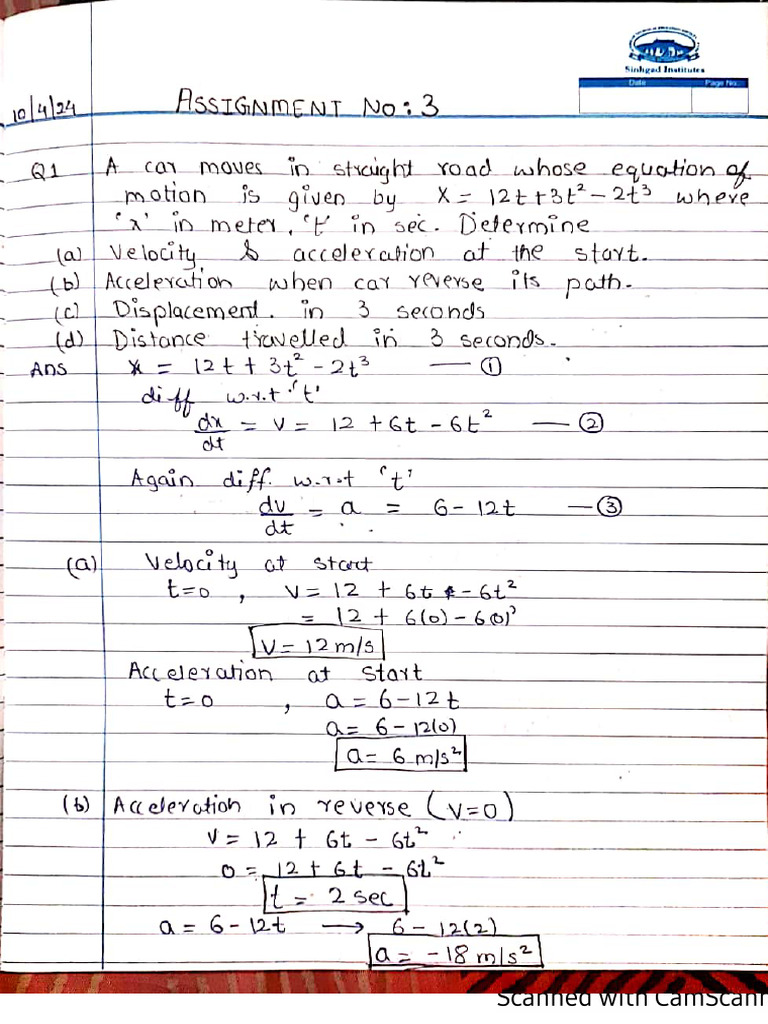 Sinhgad Institutes
Date Page No.
10/4/24 ASSIGNMENT NO: 3
Q1 A car moves in straight road whose equation of
motion is given by X = 12t + 3t² - 2t³ where
'x' in meter, 't' in sec. Determine
(a) Velocity & acceleration at the start.
(b) Acceleration when car reverse its path.
(c) Displacement. in 3 seconds
(d) Distance travelled in 3 seconds.
Ans x = 12t + 3t² - 2t³ — ①
diff w.r.t 't'
dx/dt = v = 12 + 6t - 6t² — ②
Again diff. w.r.t 't'
dv/dt = a = 6 - 12t — ③
(a) Velocity at start
t=0 , v = 12 + 6t - 6t²
= 12 + 6(0) - 6(0)²
v = 12 m/s
Acceleration at start
t=0 , a = 6 - 12t
a = 6 - 12(0)
a = 6 m/s²
(b) Acceleration in reverse (v=0)
v = 12 + 6t - 6t²
0 = 12 + 6t - 6t²
t = 2 sec
a = 6 - 12t → 6 - 12(2)
a = -18 m/s²
Scanned with CamScanr